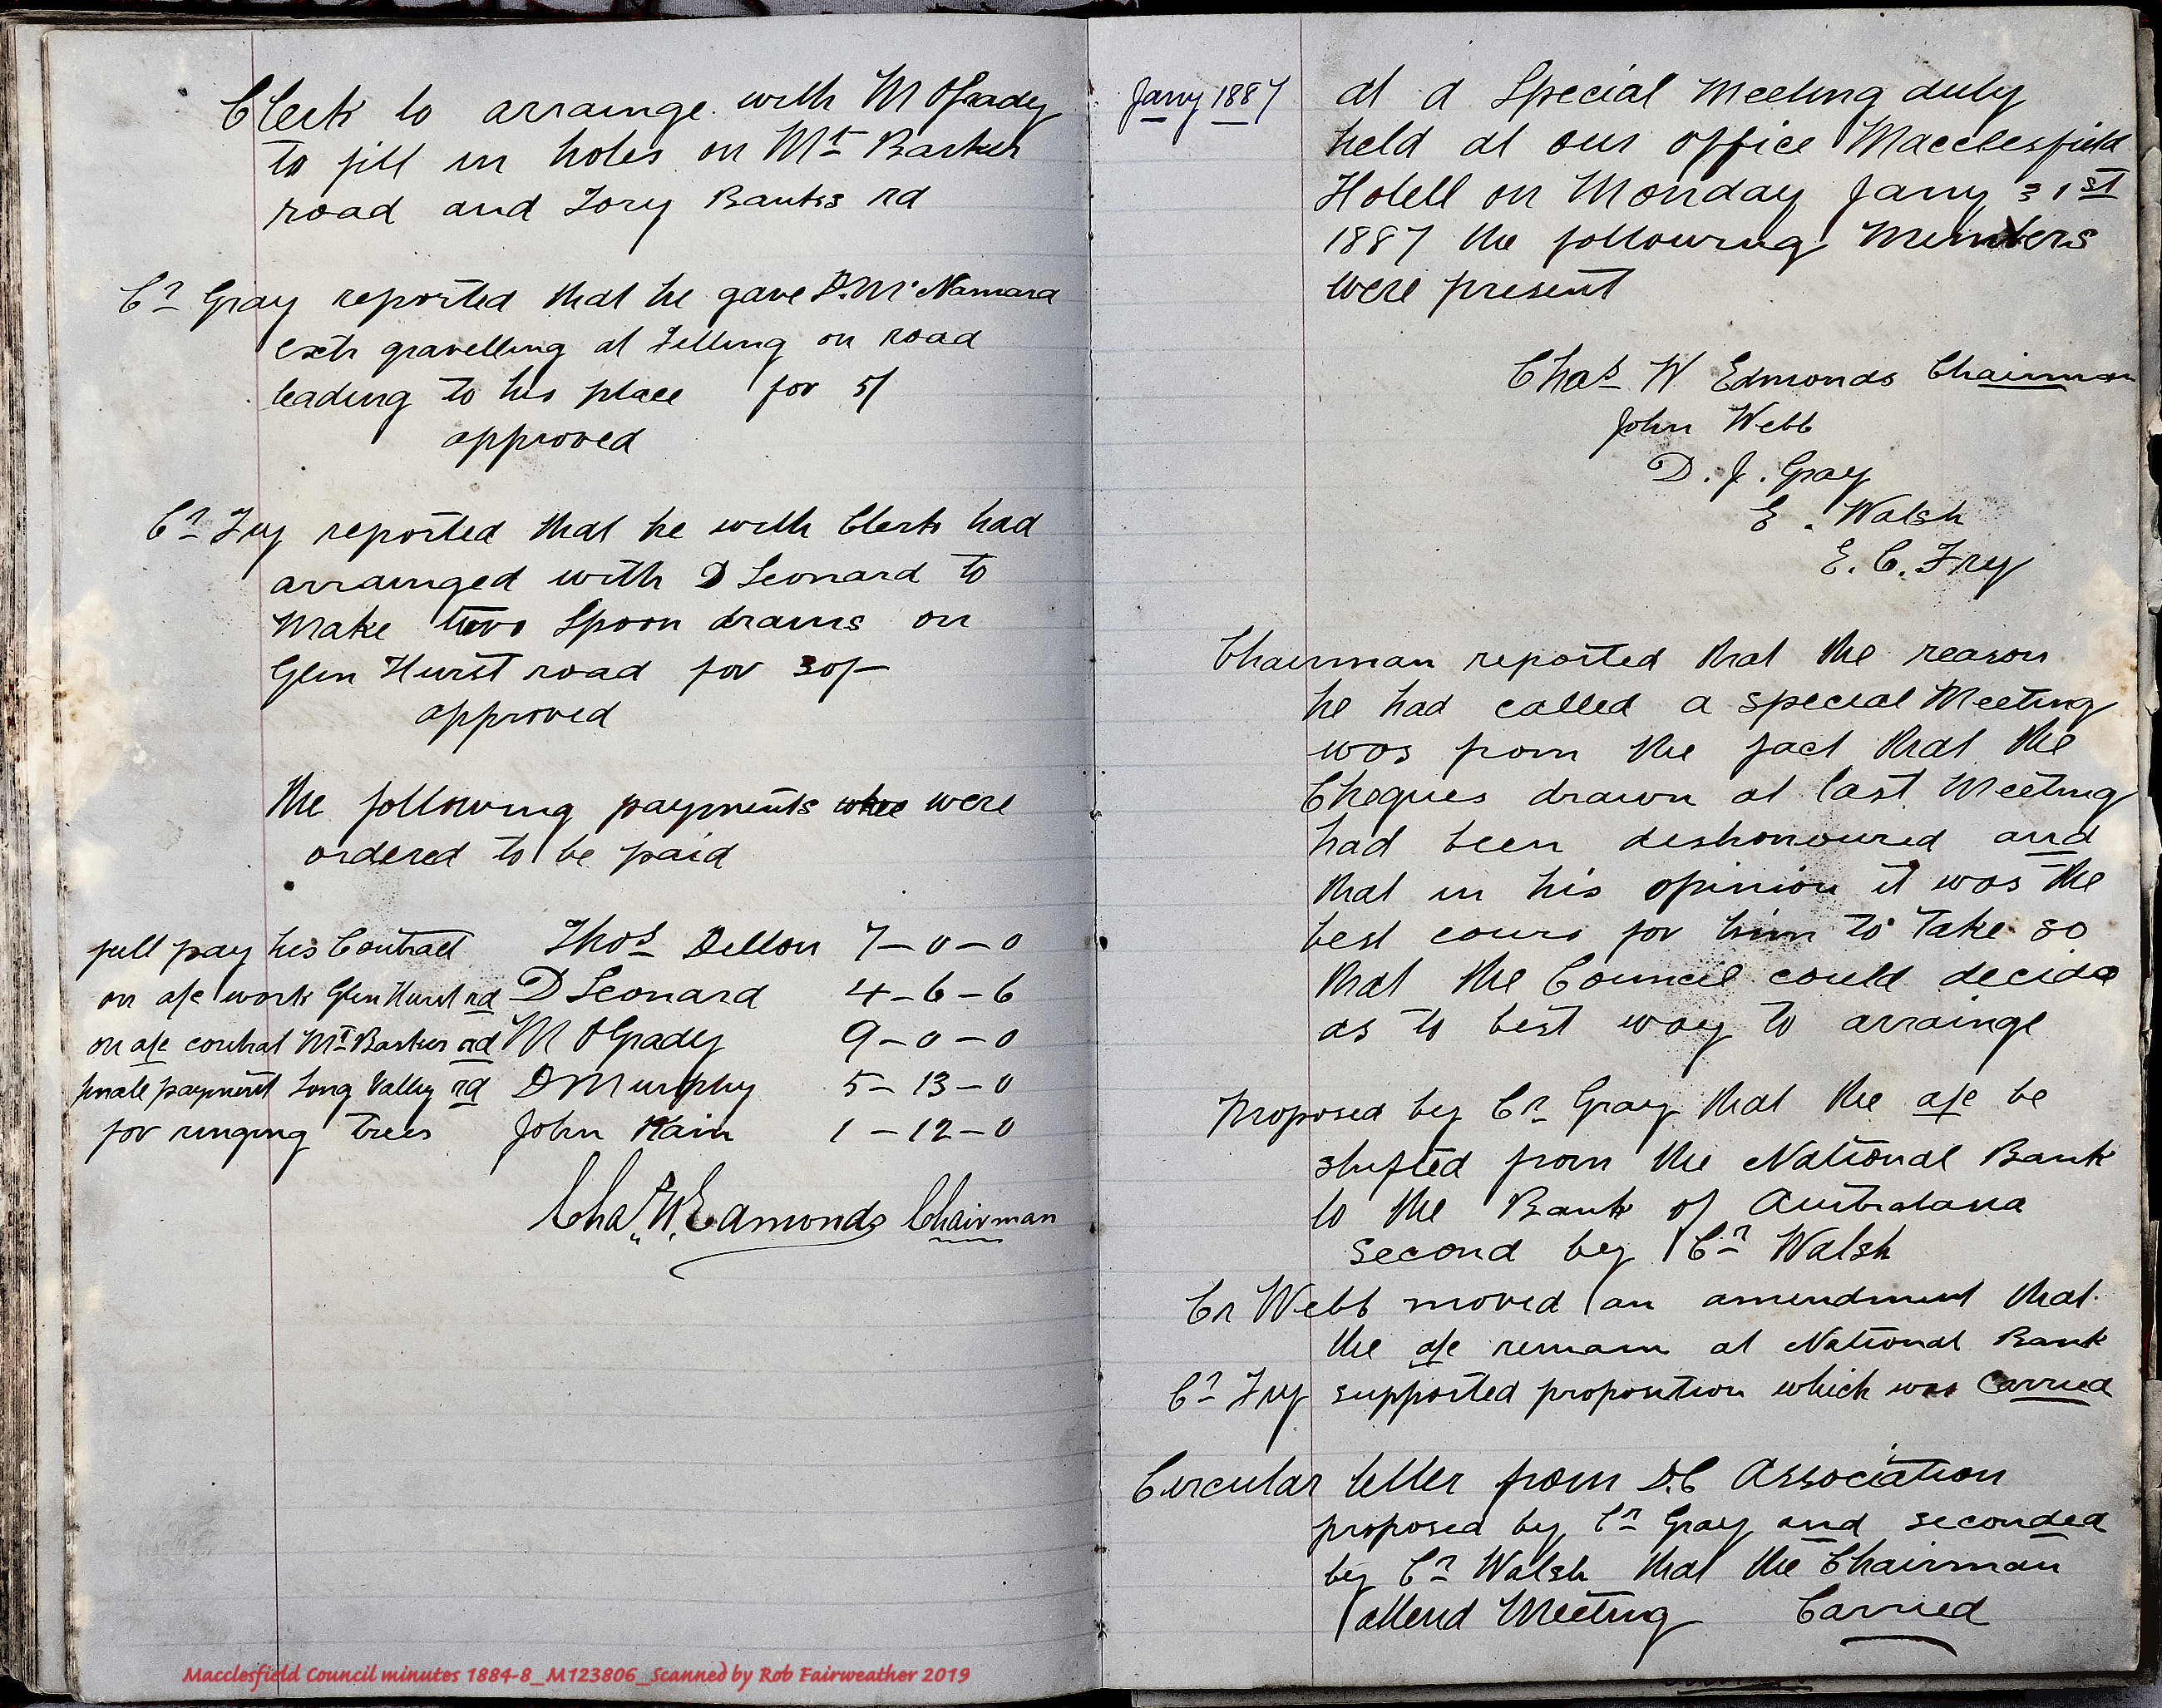 Clerk to arrainge with M OGrady
to fill in holes on Mt Barker
road and Tory Banks rd
Cr Gray reported that he gave D. McNamara
extr gravelling at Filling on road
leading to his place for 5/
approved
Cr Fry reported that he with Clerk had
arrainged with D Leonard to
make two Spoon drains on
Glen Hurst road for 30/-
approved
The following payments were
ordered to be paid
full pay his Contract Thos Dillon 7-0-0
on a/c work Glen Hurst rd D Leonard 4-6-6
on a/c contrat Mt Barker rd M OGrady 9-0-0
finale payment Long Valley rd D Murphy 5-13-0
for ringing trees John Kain 1-12-0
Chas. W. Edmonds Chairman
Jany 1887
at a Special Meeting duly
held at our office Macclesfield
Hotell on Monday Jany 31st
1887 the following Members
were present
Chas W Edmonds Chairman
John Webb
D. J. Gray
E. Walsh
E. C. Fry
Chairman reported that the reason
he had called a special Meeting
was from the fact that the
Cheques drawn at last Meeting
had been dishonoured and
that in his opinion it was the
best cours for him to take so
that the Council could decide
as to best way to arrainge
Proposed by Cr Gray that the a/c be
shifted from the National Bank
to the Bank of Australasia
second by Cr Walsh
Cr Webb moved an amendment that
the a/c remain at National Bank
Cr Fry supported proposition which was Carried
Circular letter from D.C Association
proposed by Cr Gray and seconded
by Cr Walsh that the Chairman
attend Meeting Carried
Macclesfield Council minutes 1884-8_M123806_Scanned by Rob Fairweather 2019